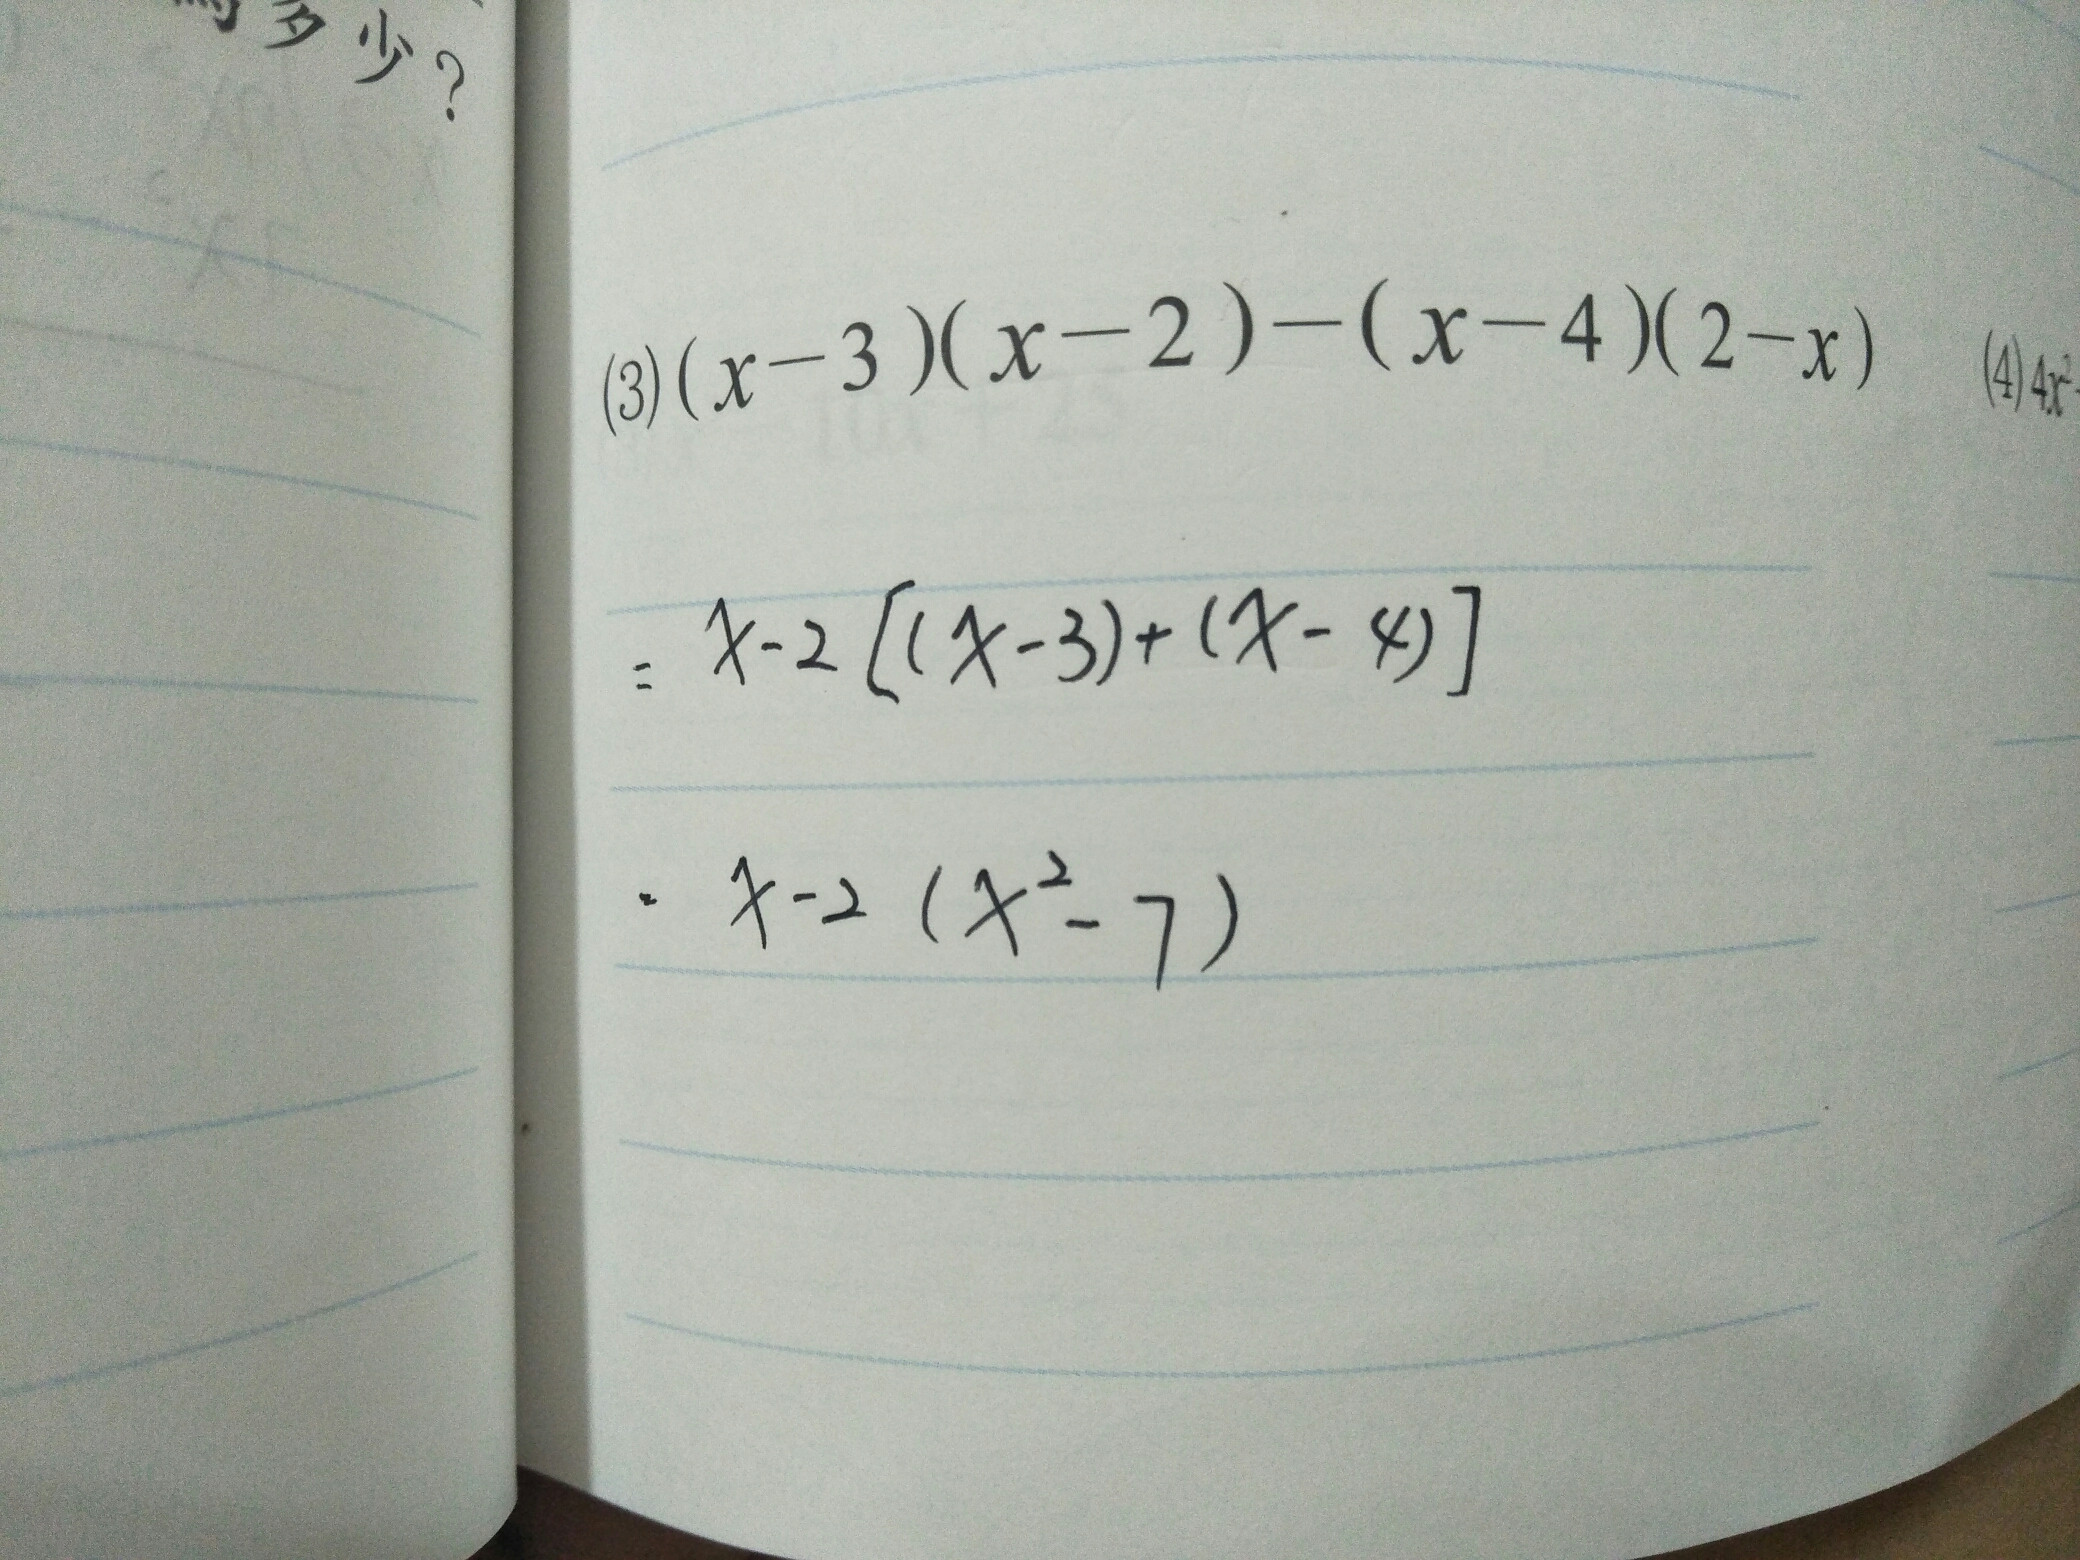 多少?
(3)(x－3)(x－2)－(x－4)(2－x)
(4)4x²
= x-2[(x-3)+(x-4)]
= x-2(x²-7)